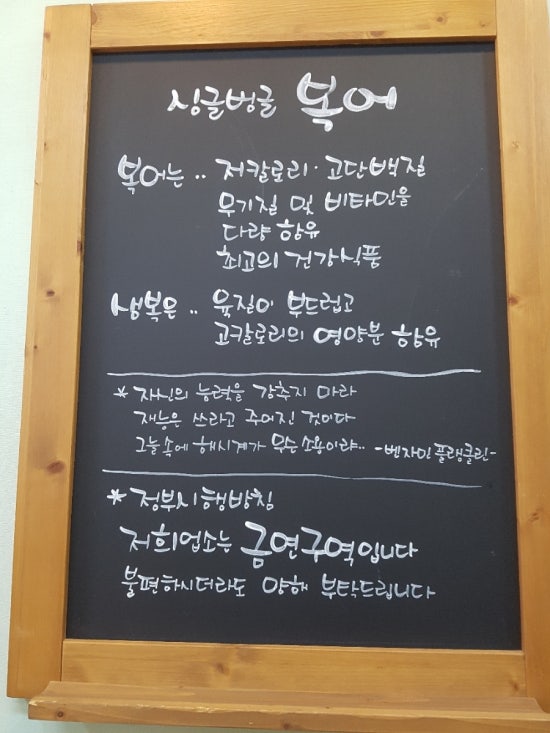 싱글벙글 복어
복어는.. 저칼로리·고단백질
무기질 및 비타민을
다량 함유
최고의 건강식품
생복은.. 육질이 부드럽고
고칼로리의 영양분 함유
* 자신의 능력을 감추지 마라
재능은 쓰라고 주어진 것이다
그늘속에 해시계가 무슨소용이랴..
-벤자민 플랭클린-
* 정부시행방침
저희업소는 금연구역입니다
불편하시더라도 양해 부탁드립니다